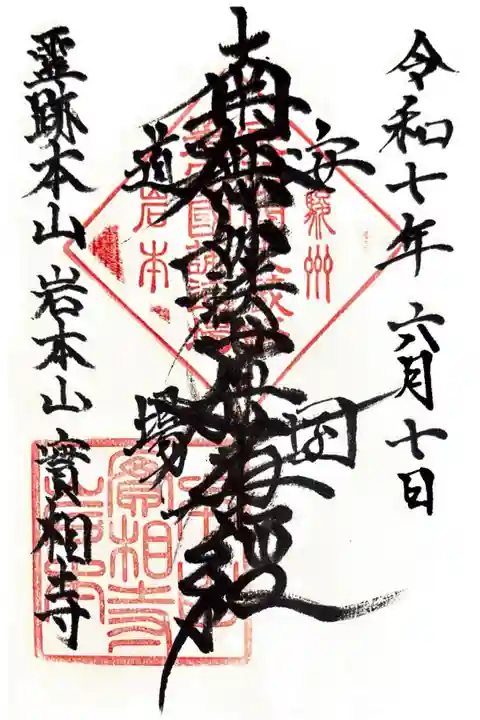 令和七年 六月十日
安国
南無妙法蓮華経
道場
霊跡本山 岩本山 實相寺
駿州
岩本
實相寺